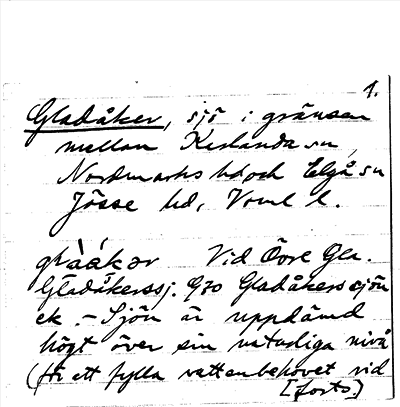 1.
Gladåker, sjö i gränsen
mellan Karlanda sn,
Nordmarks hd och Elgå sn
Jösse hd, Vrml l.
Vid Övre Gla.
Gladåkerssj. 970 Gladåkerssjön
ek. - Sjön är uppdämd
högt över sin naturliga nivå
(för att fylla vattenbehovet vid
[forts.)